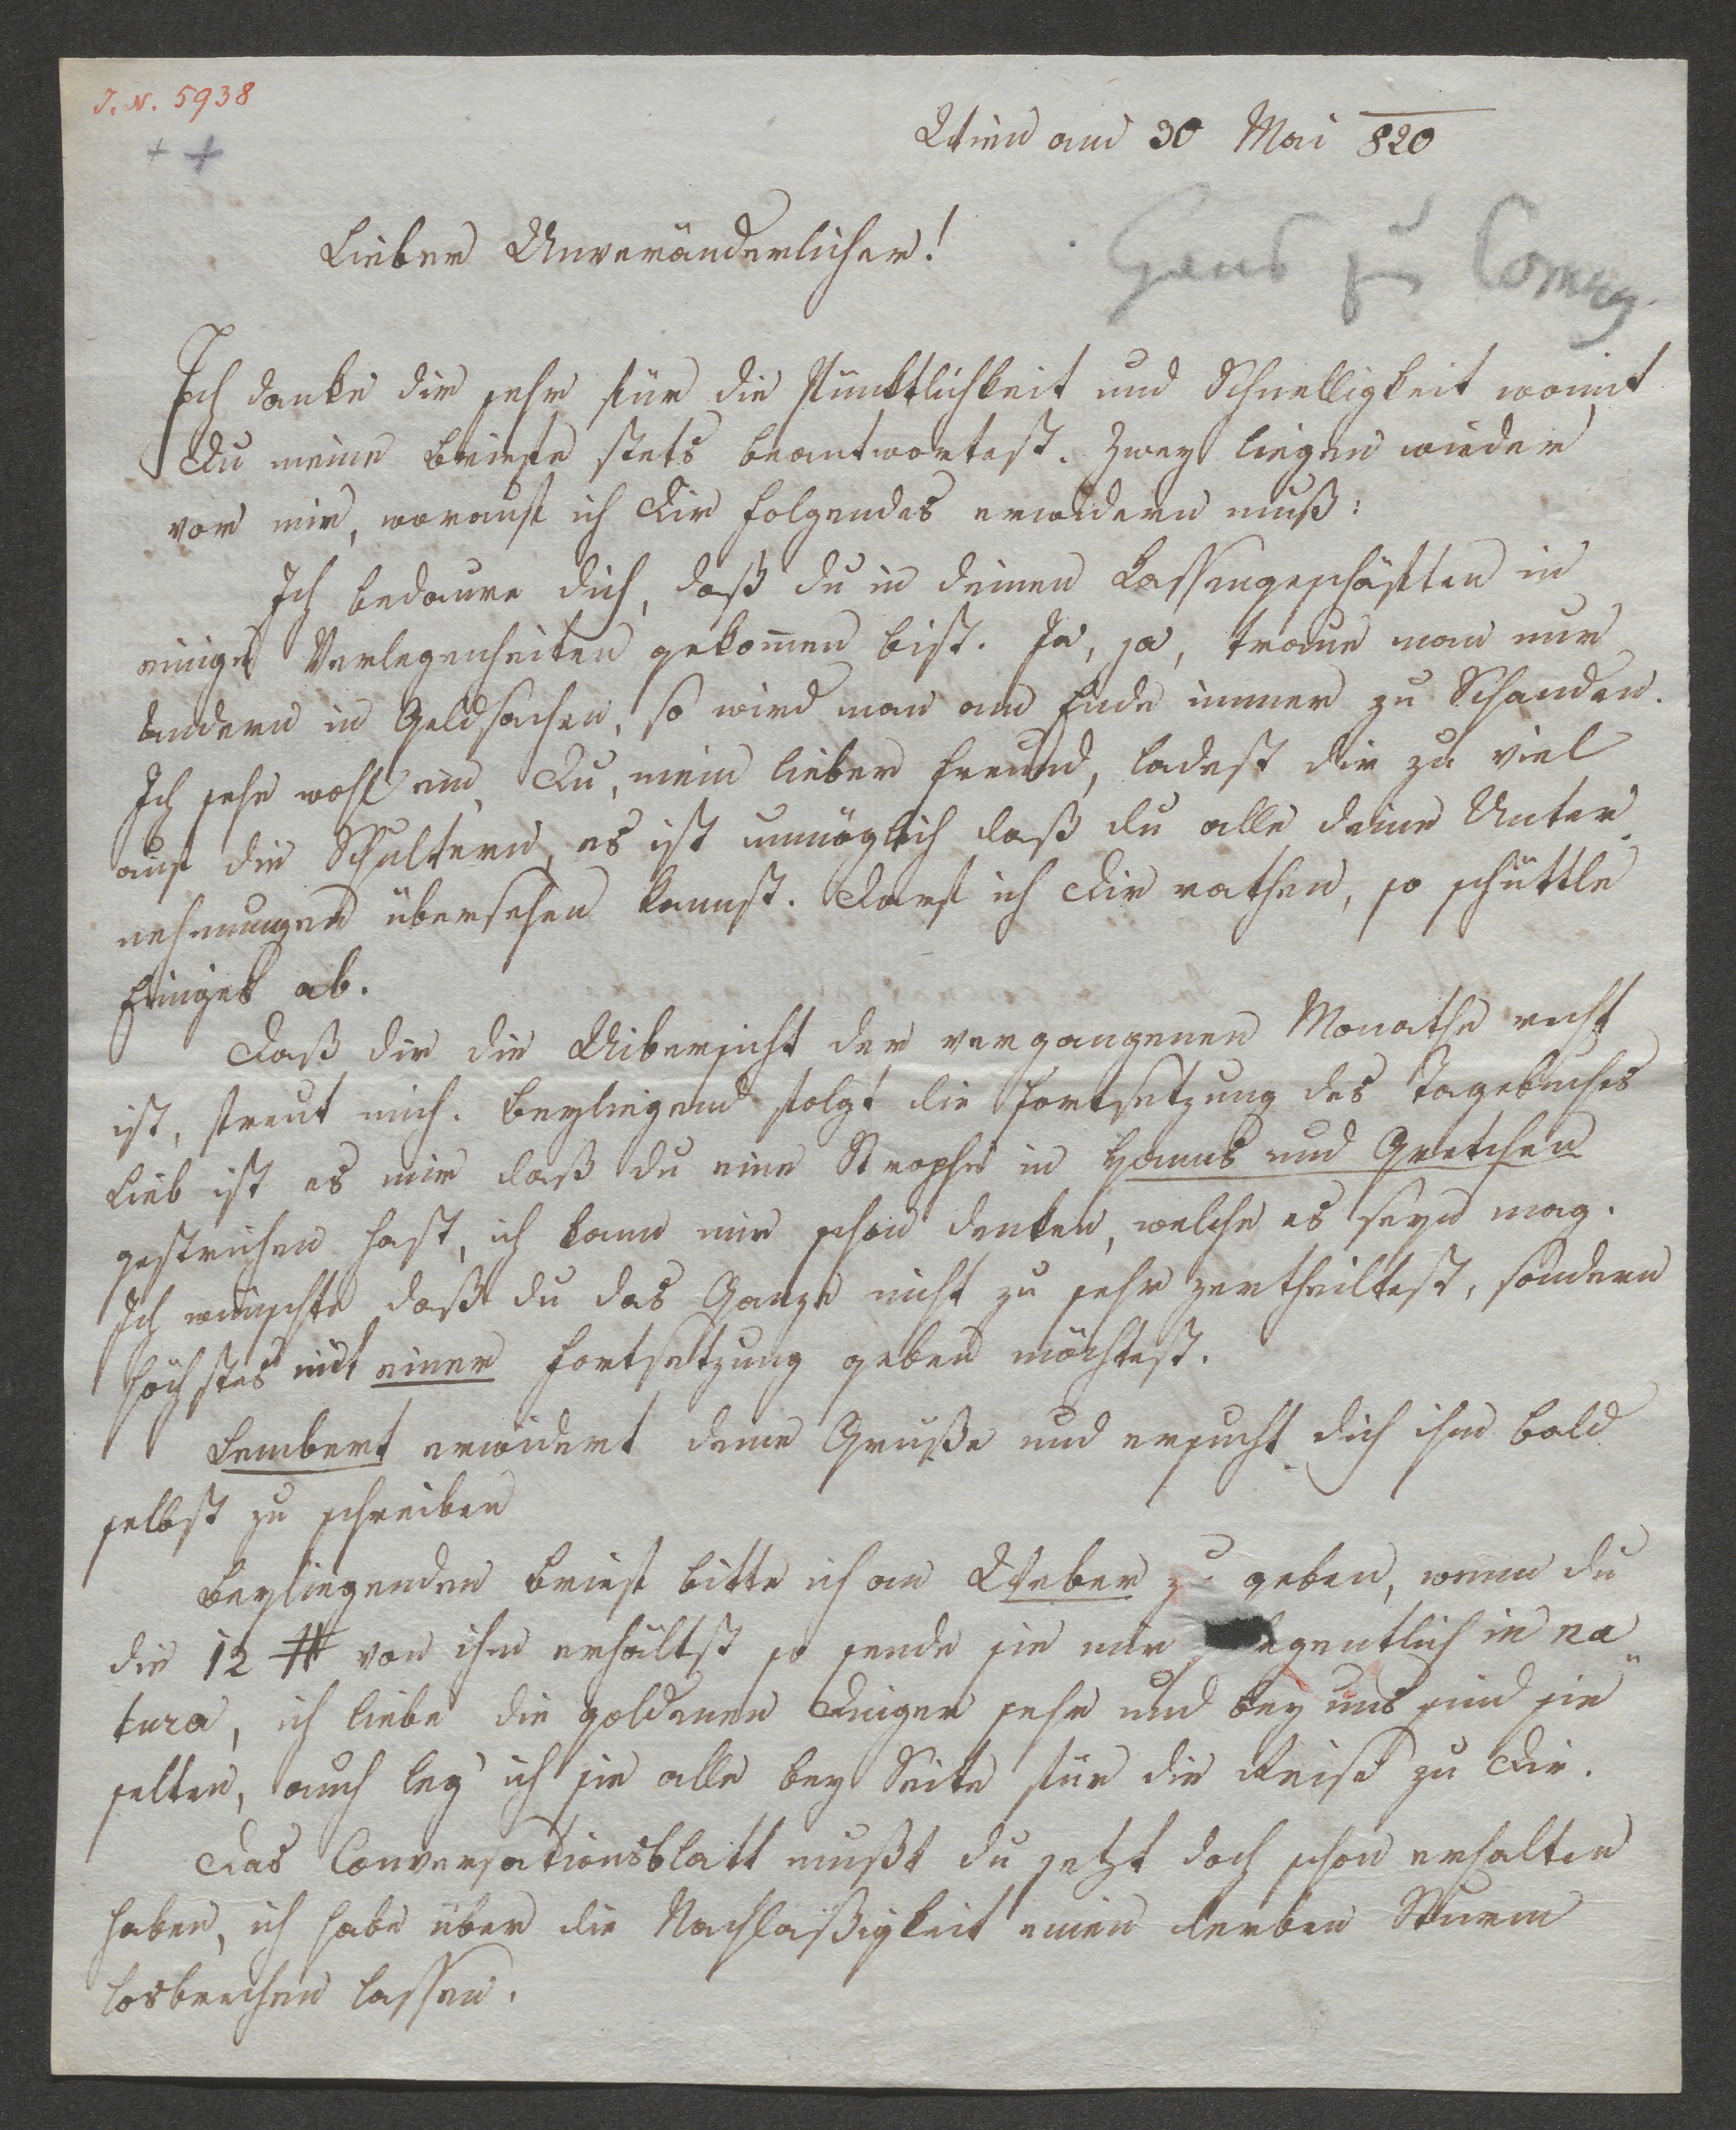 J. N. 5938
Wien am 30 Mai 820
Lieber Unveränderlicher!
Ich danke dir sehr für die Pünktlichkeit und Schnelligkeit womit
Du meine Briefe stets beantwortest. Zwey liegen wieder
vor mir, worauf ich Dir folgendes erwidern muß:
Ich bedaure dich, daß du in deinen Cassengeschäften in
einige Verlegenheiten gekom̄en bist. Ja, ja, traue man nur
Andern in Geldsachen, so wird man am Ende immer zu Schanden.
Ich sehe wohl ein, Du, mein lieber Freund, ladest dir zu viel
auf die Schultern, es ist unmöglich daß du alle deine Unter-
nehmungen übersehen kannst. Darf ich Dir rathen, so schüttle
Einiges ab.
Daß dir die Uibersicht der vergangenen Monathe recht
ist, freut mich. Beyliegend folgt die Fortsetzung des Tagebuches
Lieb ist es mir daß du eine Strophe in Hanns und Gretchen
gestrichen hast, ich kann mir schon denken, welche es seyn mag.
Ich wünschte daß du das Ganze nicht zu sehr zertheiltest, sondern
höchstes mit einer Fortsetzung geben möchtest.
Lembert erwidert deine Grüße und ersucht dich ihm bald
selbst zu schreiben
Beyliegenden Brief bitte ich an Weber zu geben, wenn du
die 12 # von ihm erhältst so sende sie mir gelegentlich in na
tura, ich liebe die goldenen Dinger sehr und bey uns sind sie
selten, auch leg' ich sie alle bey Seite für die Reise zu Dir.
Das Conversationsblatt mußt du jetzt doch schon erhalten
haben, ich habe über die Nachläßigkeit einen derben Sturm
losbrechen lassen.